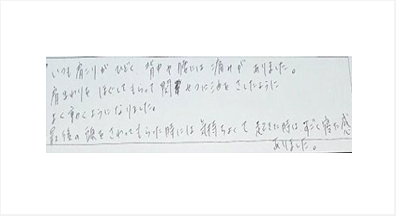 いつも肩こりがひどく 背中や腰には痛みがありました。
肩まわりをほぐしてもらって関節に油をさしたように
よく動くようになりました。
最後の頭をさわってもらった時には気持ちよくて起きた時はすごく寝た感
ありました。